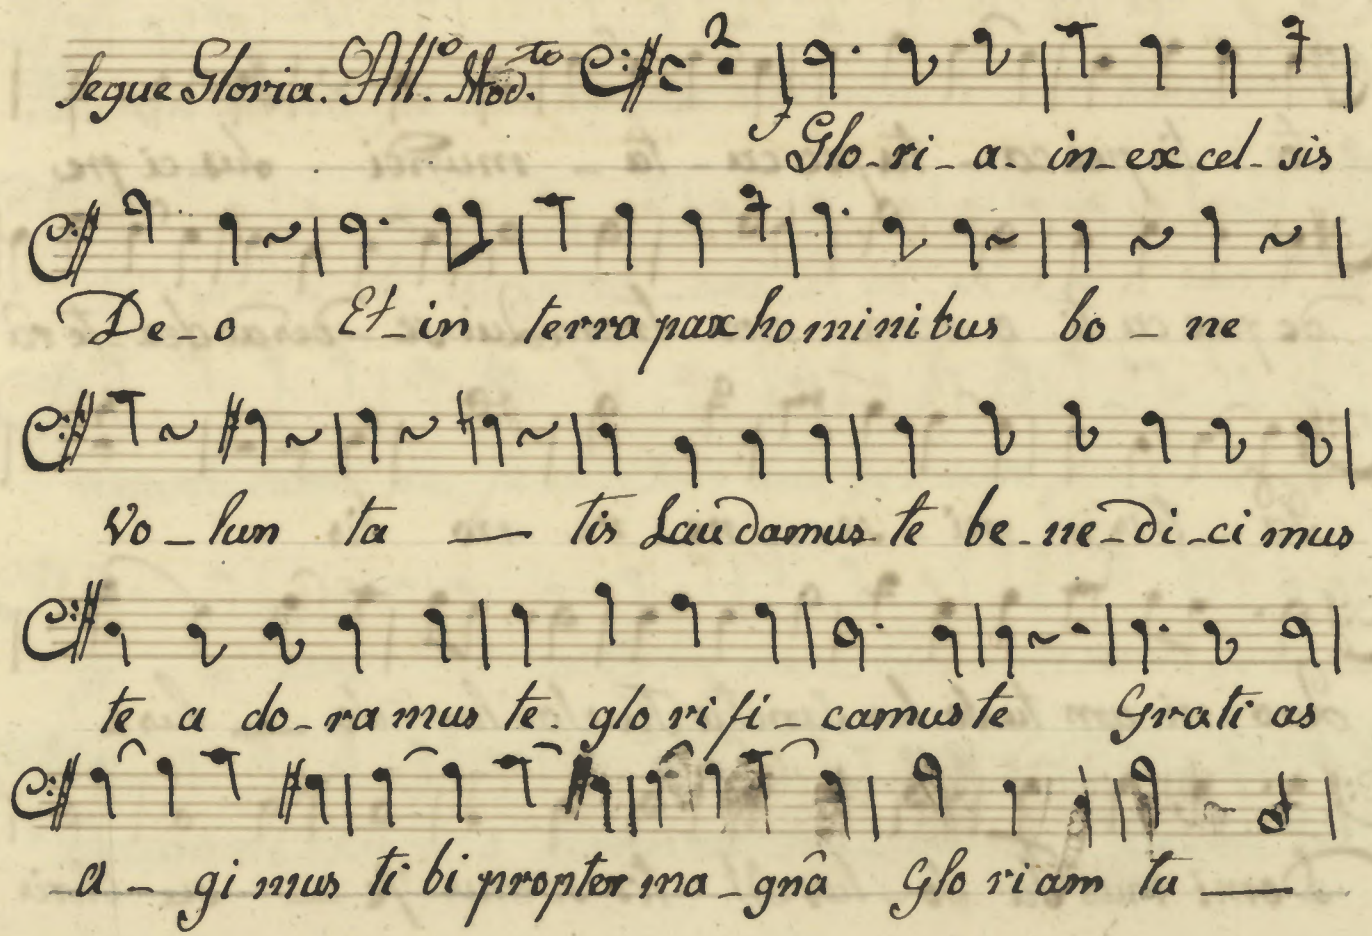 Segue Gloria. All.º Mod.to
f Glo-ri-a- in-ex cel-sis
De-o Et-in terra pax hominibus bo-ne
vo-lun ta — tis Laudamus te be-ne-di-ci mus
te a do-ra mus te. glo ri fi-camus te Grati as
a- gi mus ti bi propter ma-gnâ Glo riam tu —